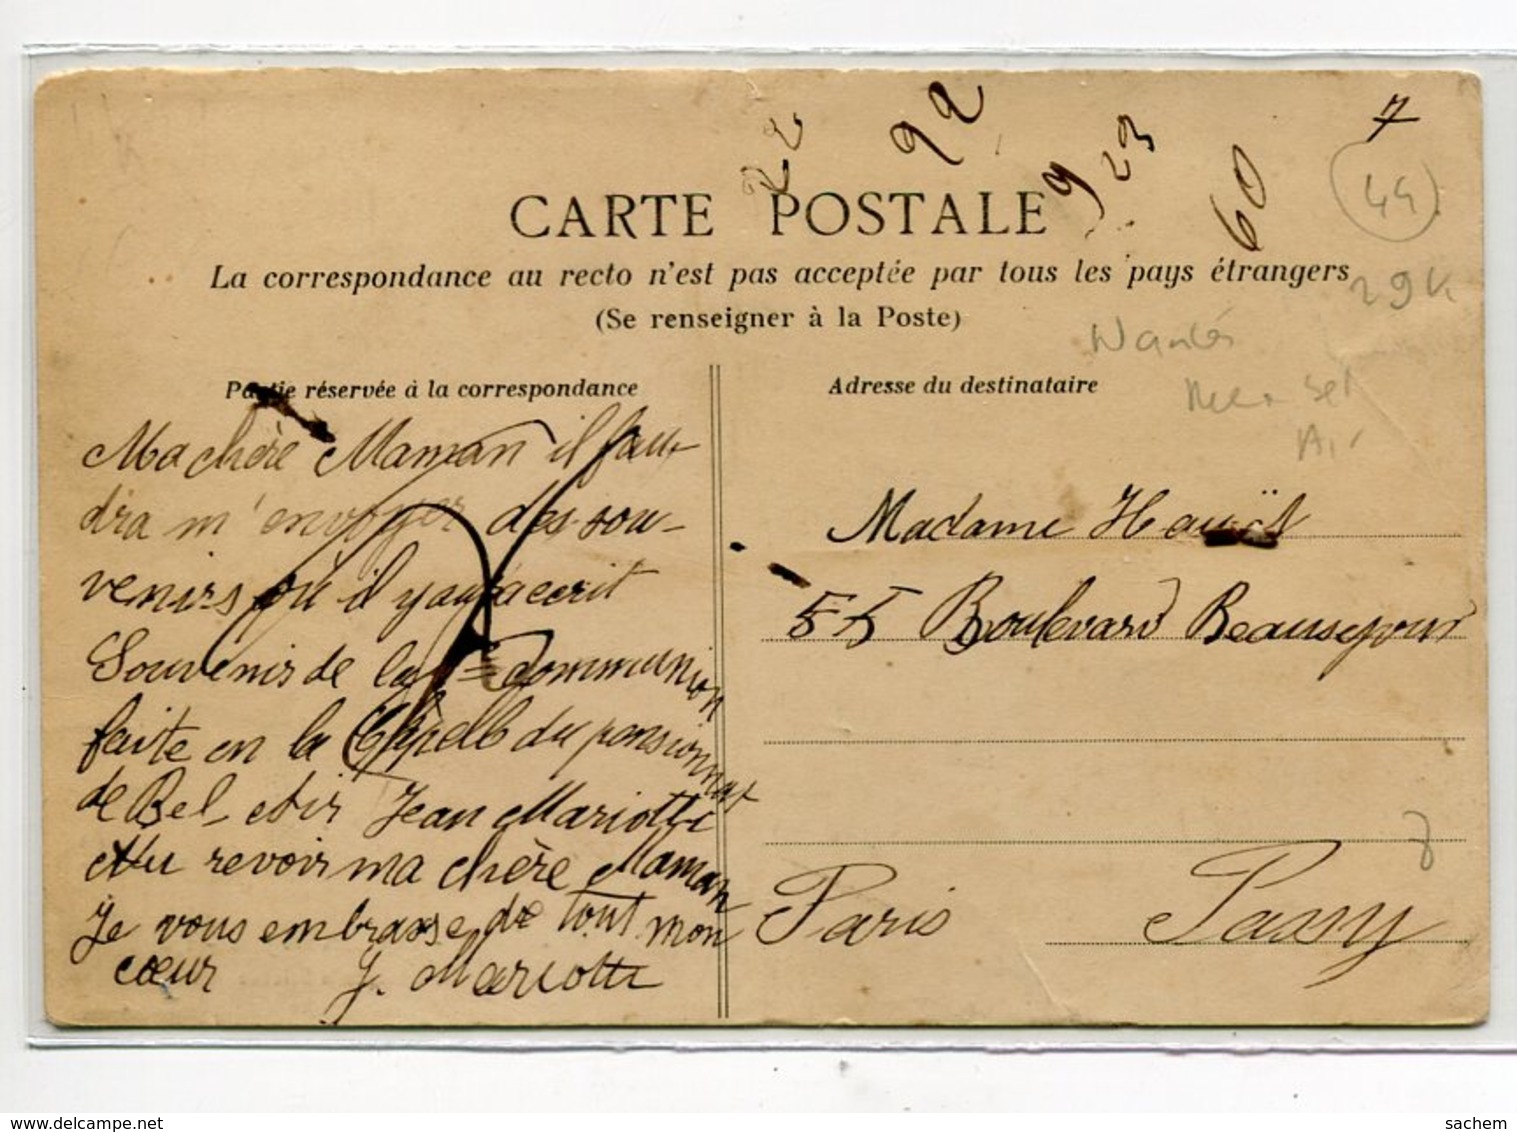 7
22
92
9 23
60
44
CARTE POSTALE
La correspondance au recto n'est pas acceptée par tous les pays étrangers
(Se renseigner à la Poste)
29 k
Nantes
Partie réservée à la correspondance
Ma chère Maman il fau
dra m'envoyer des sou-
venirs où il y aura ecrit
Souvenir de la 1ère communion
faite en la Chapelle du pensionnat
de Bel-Air Jean Mariotte
Au revoir ma chère Maman
Je vous embrasse de tout mon
cœur J. Mariotte
Adresse du destinataire
Madame
55 Boulevard Beausejour
Paris Passy
www.delcampe.net
sachem